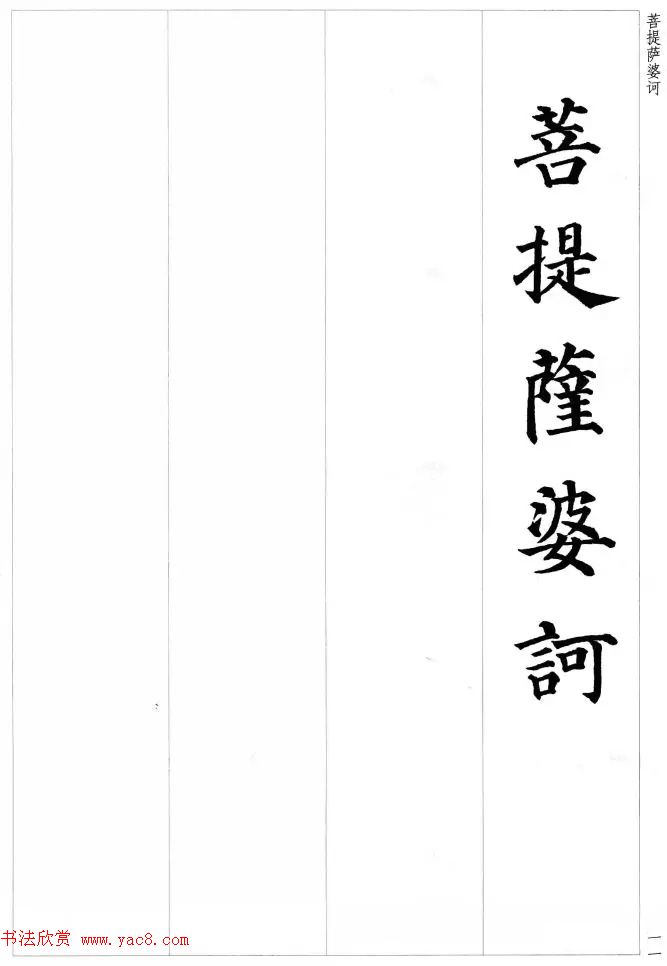 菩提萨婆诃
菩提薩婆訶
一二
书法欣赏 www.yac8.com